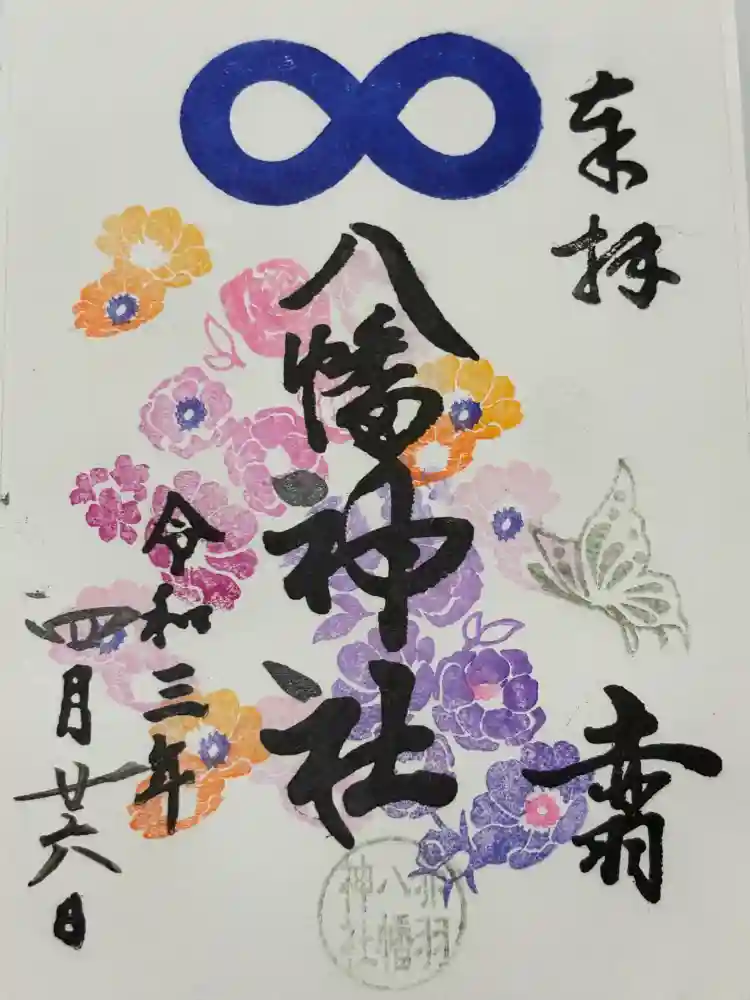 奉拝
赤羽
八幡神社
令和三年
四月廿六日
赤羽
八幡
神社